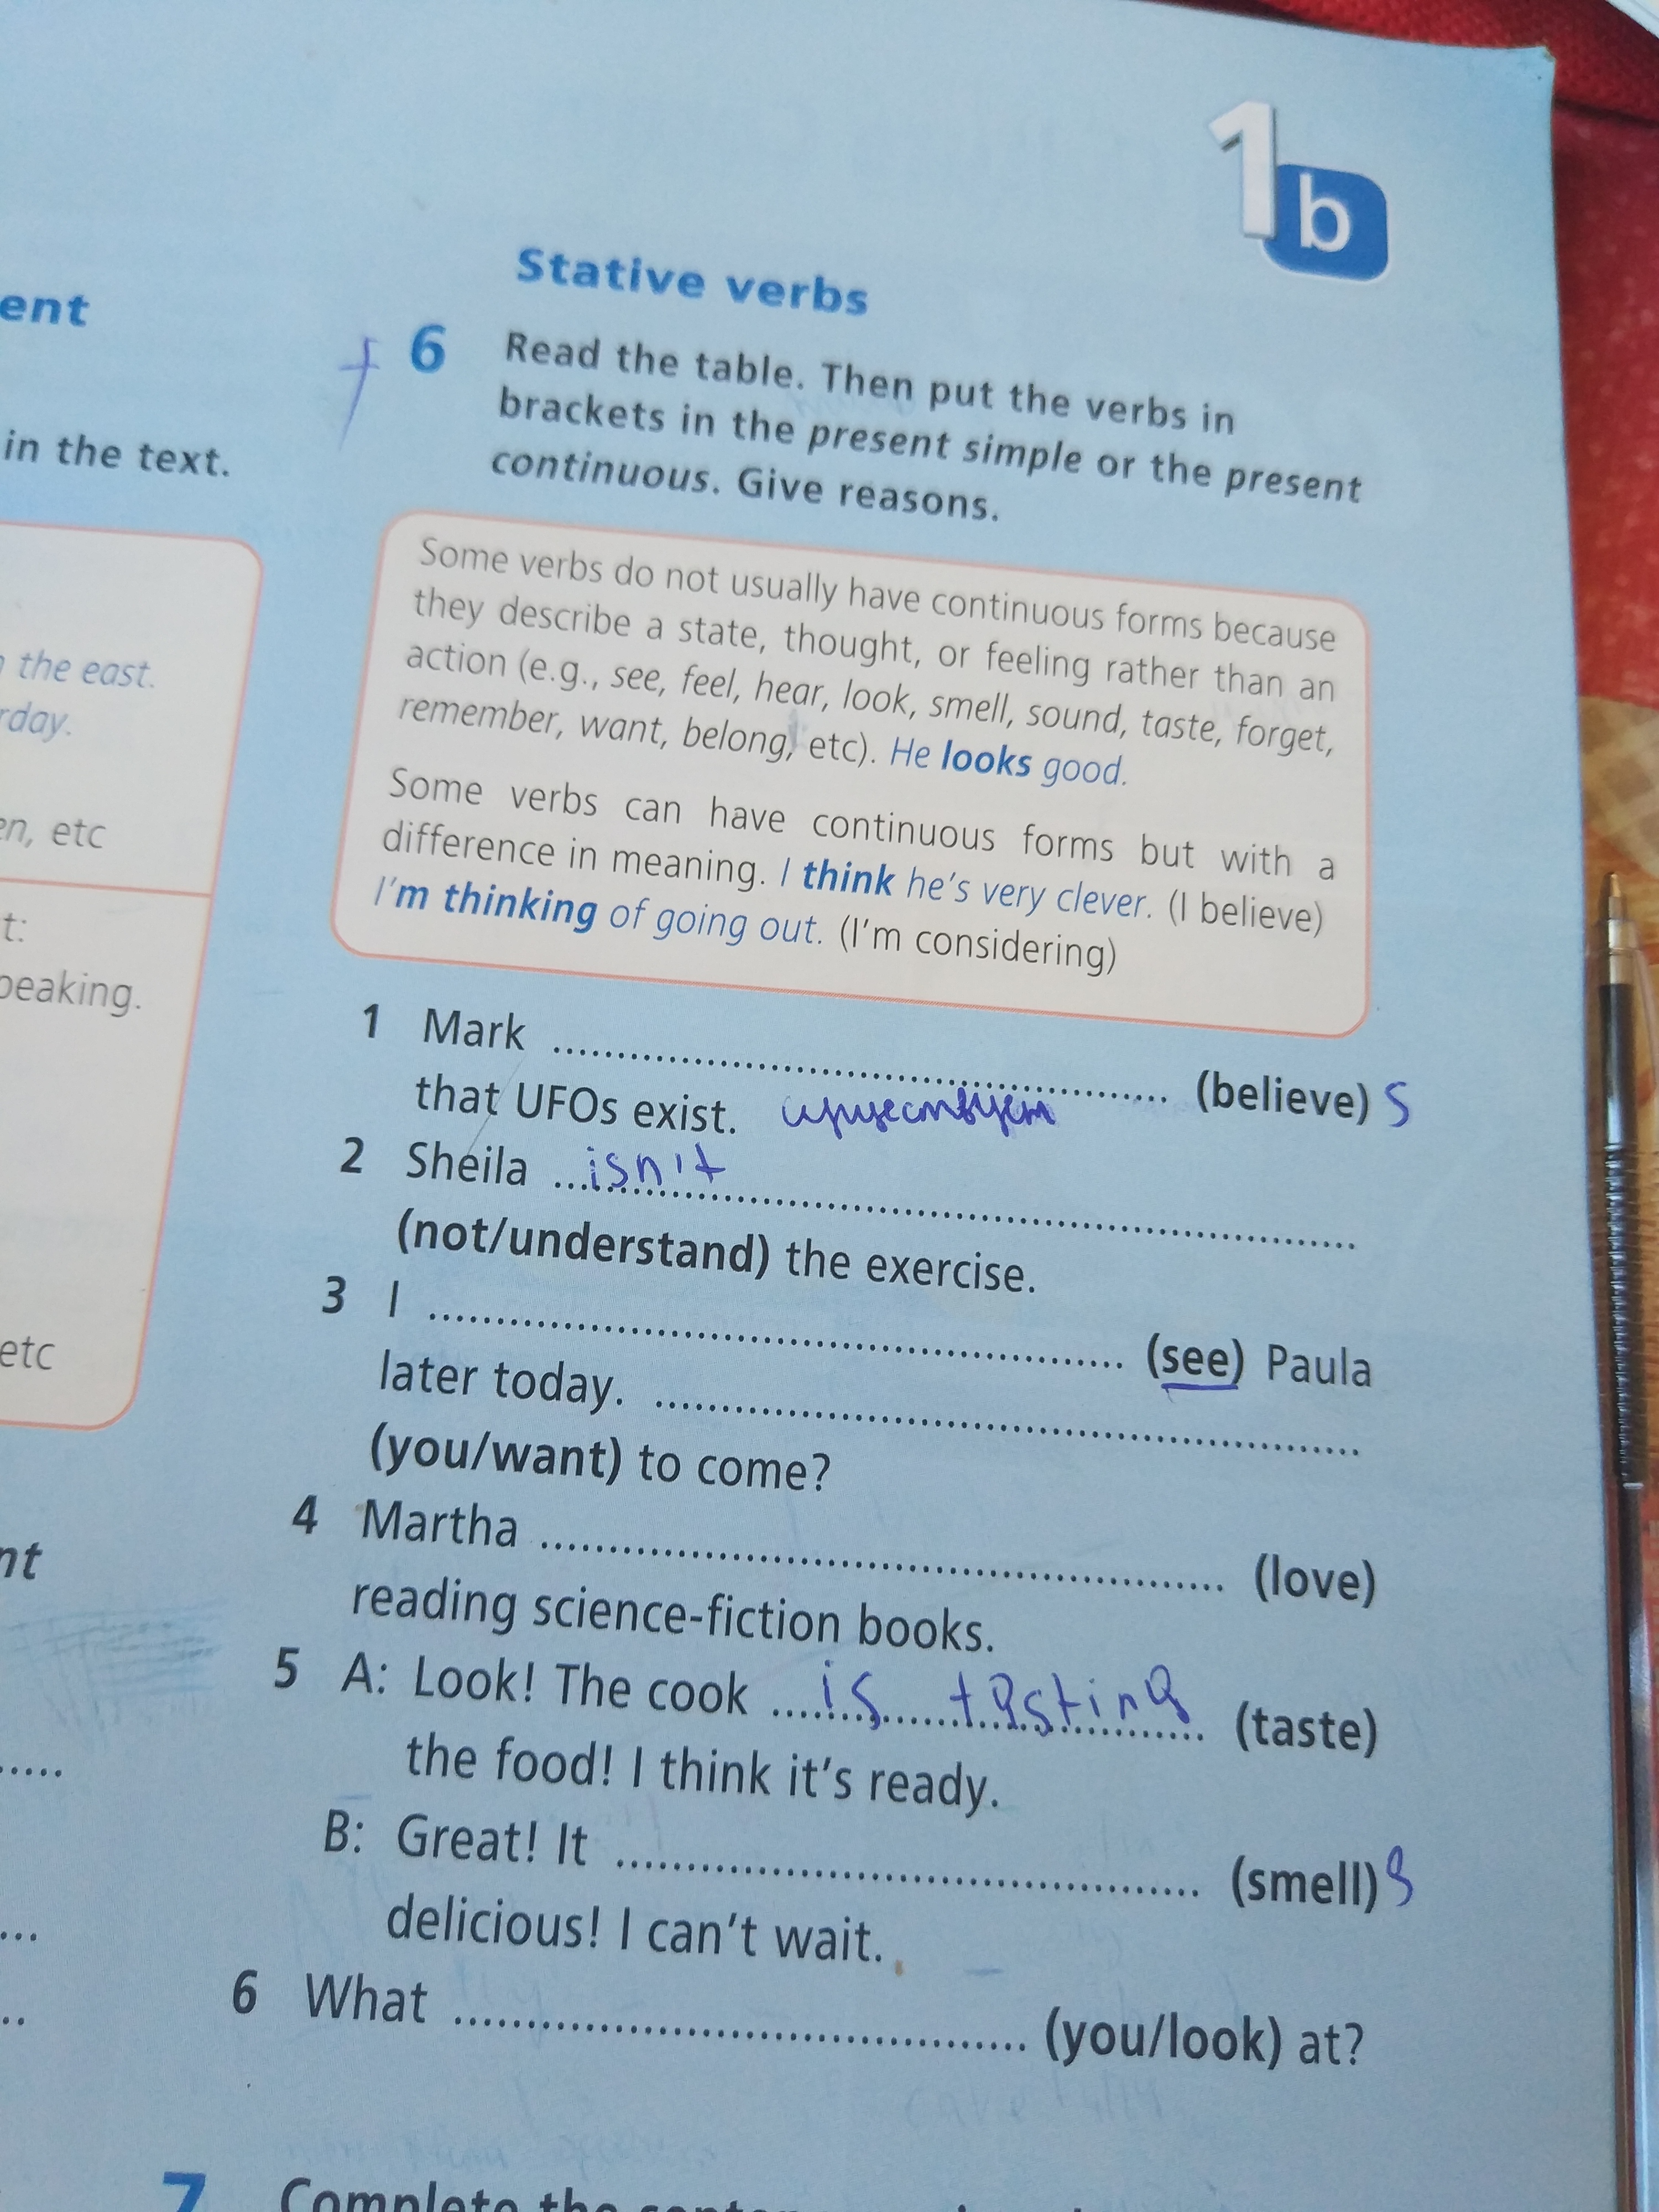 1b
ent
in the text.
n the east.
rday.
en, etc
t:
peaking.
etc
nt
Stative verbs
6 Read the table. Then put the verbs in
brackets in the present simple or the present
continuous. Give reasons.
Some verbs do not usually have continuous forms because
they describe a state, thought, or feeling rather than an
action (e.g., see, feel, hear, look, smell, sound, taste, forget,
remember, want, belong, etc). He looks good.
Some verbs can have continuous forms but with a
difference in meaning. I think he's very clever. (I believe)
I'm thinking of going out. (I'm considering)
1 Mark .......... (believe) s
that UFOs exist.
2 Sheila ...isn't..........
(not/understand) the exercise.
3 I .......... (see) Paula
later today. ..........
(you/want) to come?
4 Martha .......... (love)
reading science-fiction books.
5 A: Look! The cook ...is tasting... (taste)
the food! I think it's ready.
B: Great! It .......... (smell) s
delicious! I can't wait.
6 What .......... (you/look) at?
7